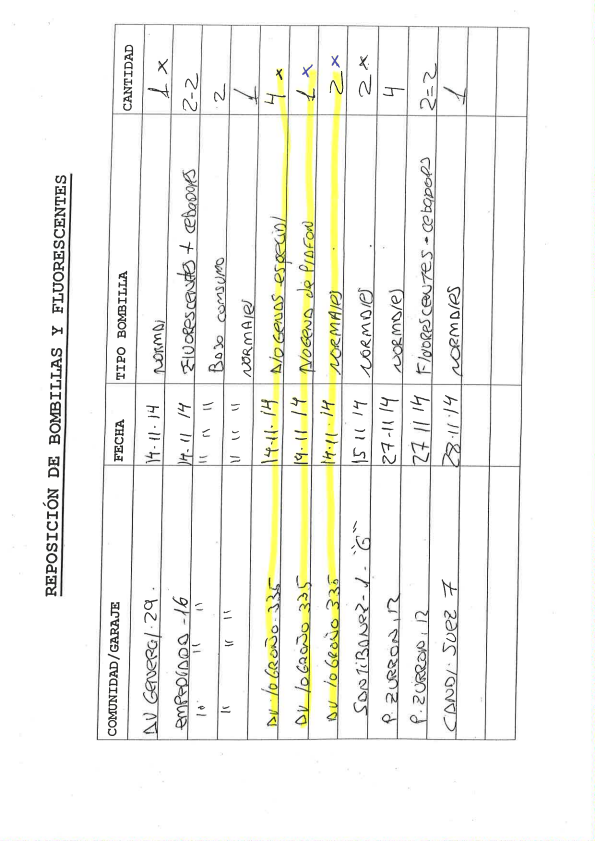 REPOSICIÓN DE BOMBILLAS Y FLUORESCENTES
COMUNIDAD/GARAJE FECHA TIPO BOMBILLA CANTIDAD
AV GENERAL·29. 14·11·14 NORMAL 1 x
EMPEDRADO -16 14·11 14 FLUORESCENTES + CEBADORES 2-2
" " " " " " BAJO CONSUMO 2
" " " " " " NORMALES 1
AV. LOGROÑO·335 14·11·14 ESPECIAL 4 x
AV LOGROÑO 335 14·11 14 de PLAFON 1 x
AV LOGROÑO 335 14·11·14 NORMALES 2 x
SANTIBAÑEZ-1-"G" 15 11 14 NORMALES 2 x
P ZURRON, 12 27-11 14 NORMALES 4
P. ZURRON, 12 27 11 14 FLUORESCENTES - CEBADORES 2=2
CANDI. SUEZ 7 28·11·14 NORMALES 1